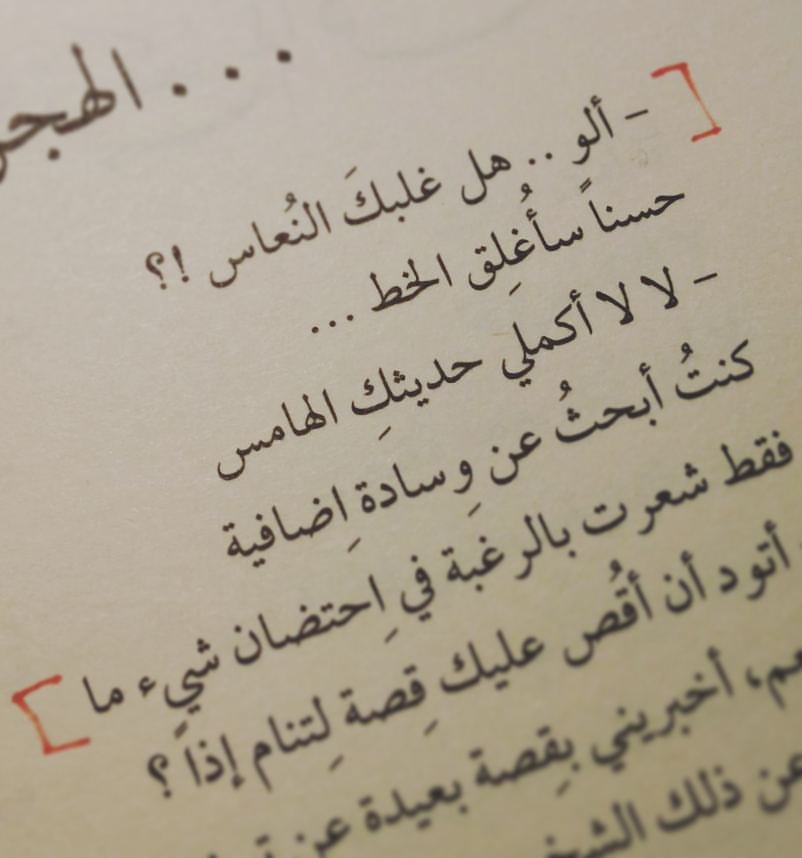 ... 
- ألو .. هل غلبكَ النُعاس !؟
حسناً سأُغلِق الخط ...
- لا لا أكملي حديثكِ الهامس
كنتُ أبحثُ عن وِسادة اِضافية
فقط شعرت بالرغبة في اِحتضان شيءٍ ما
أتود أن أقُص عليك قِصة لِتنام إذاً ؟
أخبريني بِقصة بعيدة عن
عن ذلك